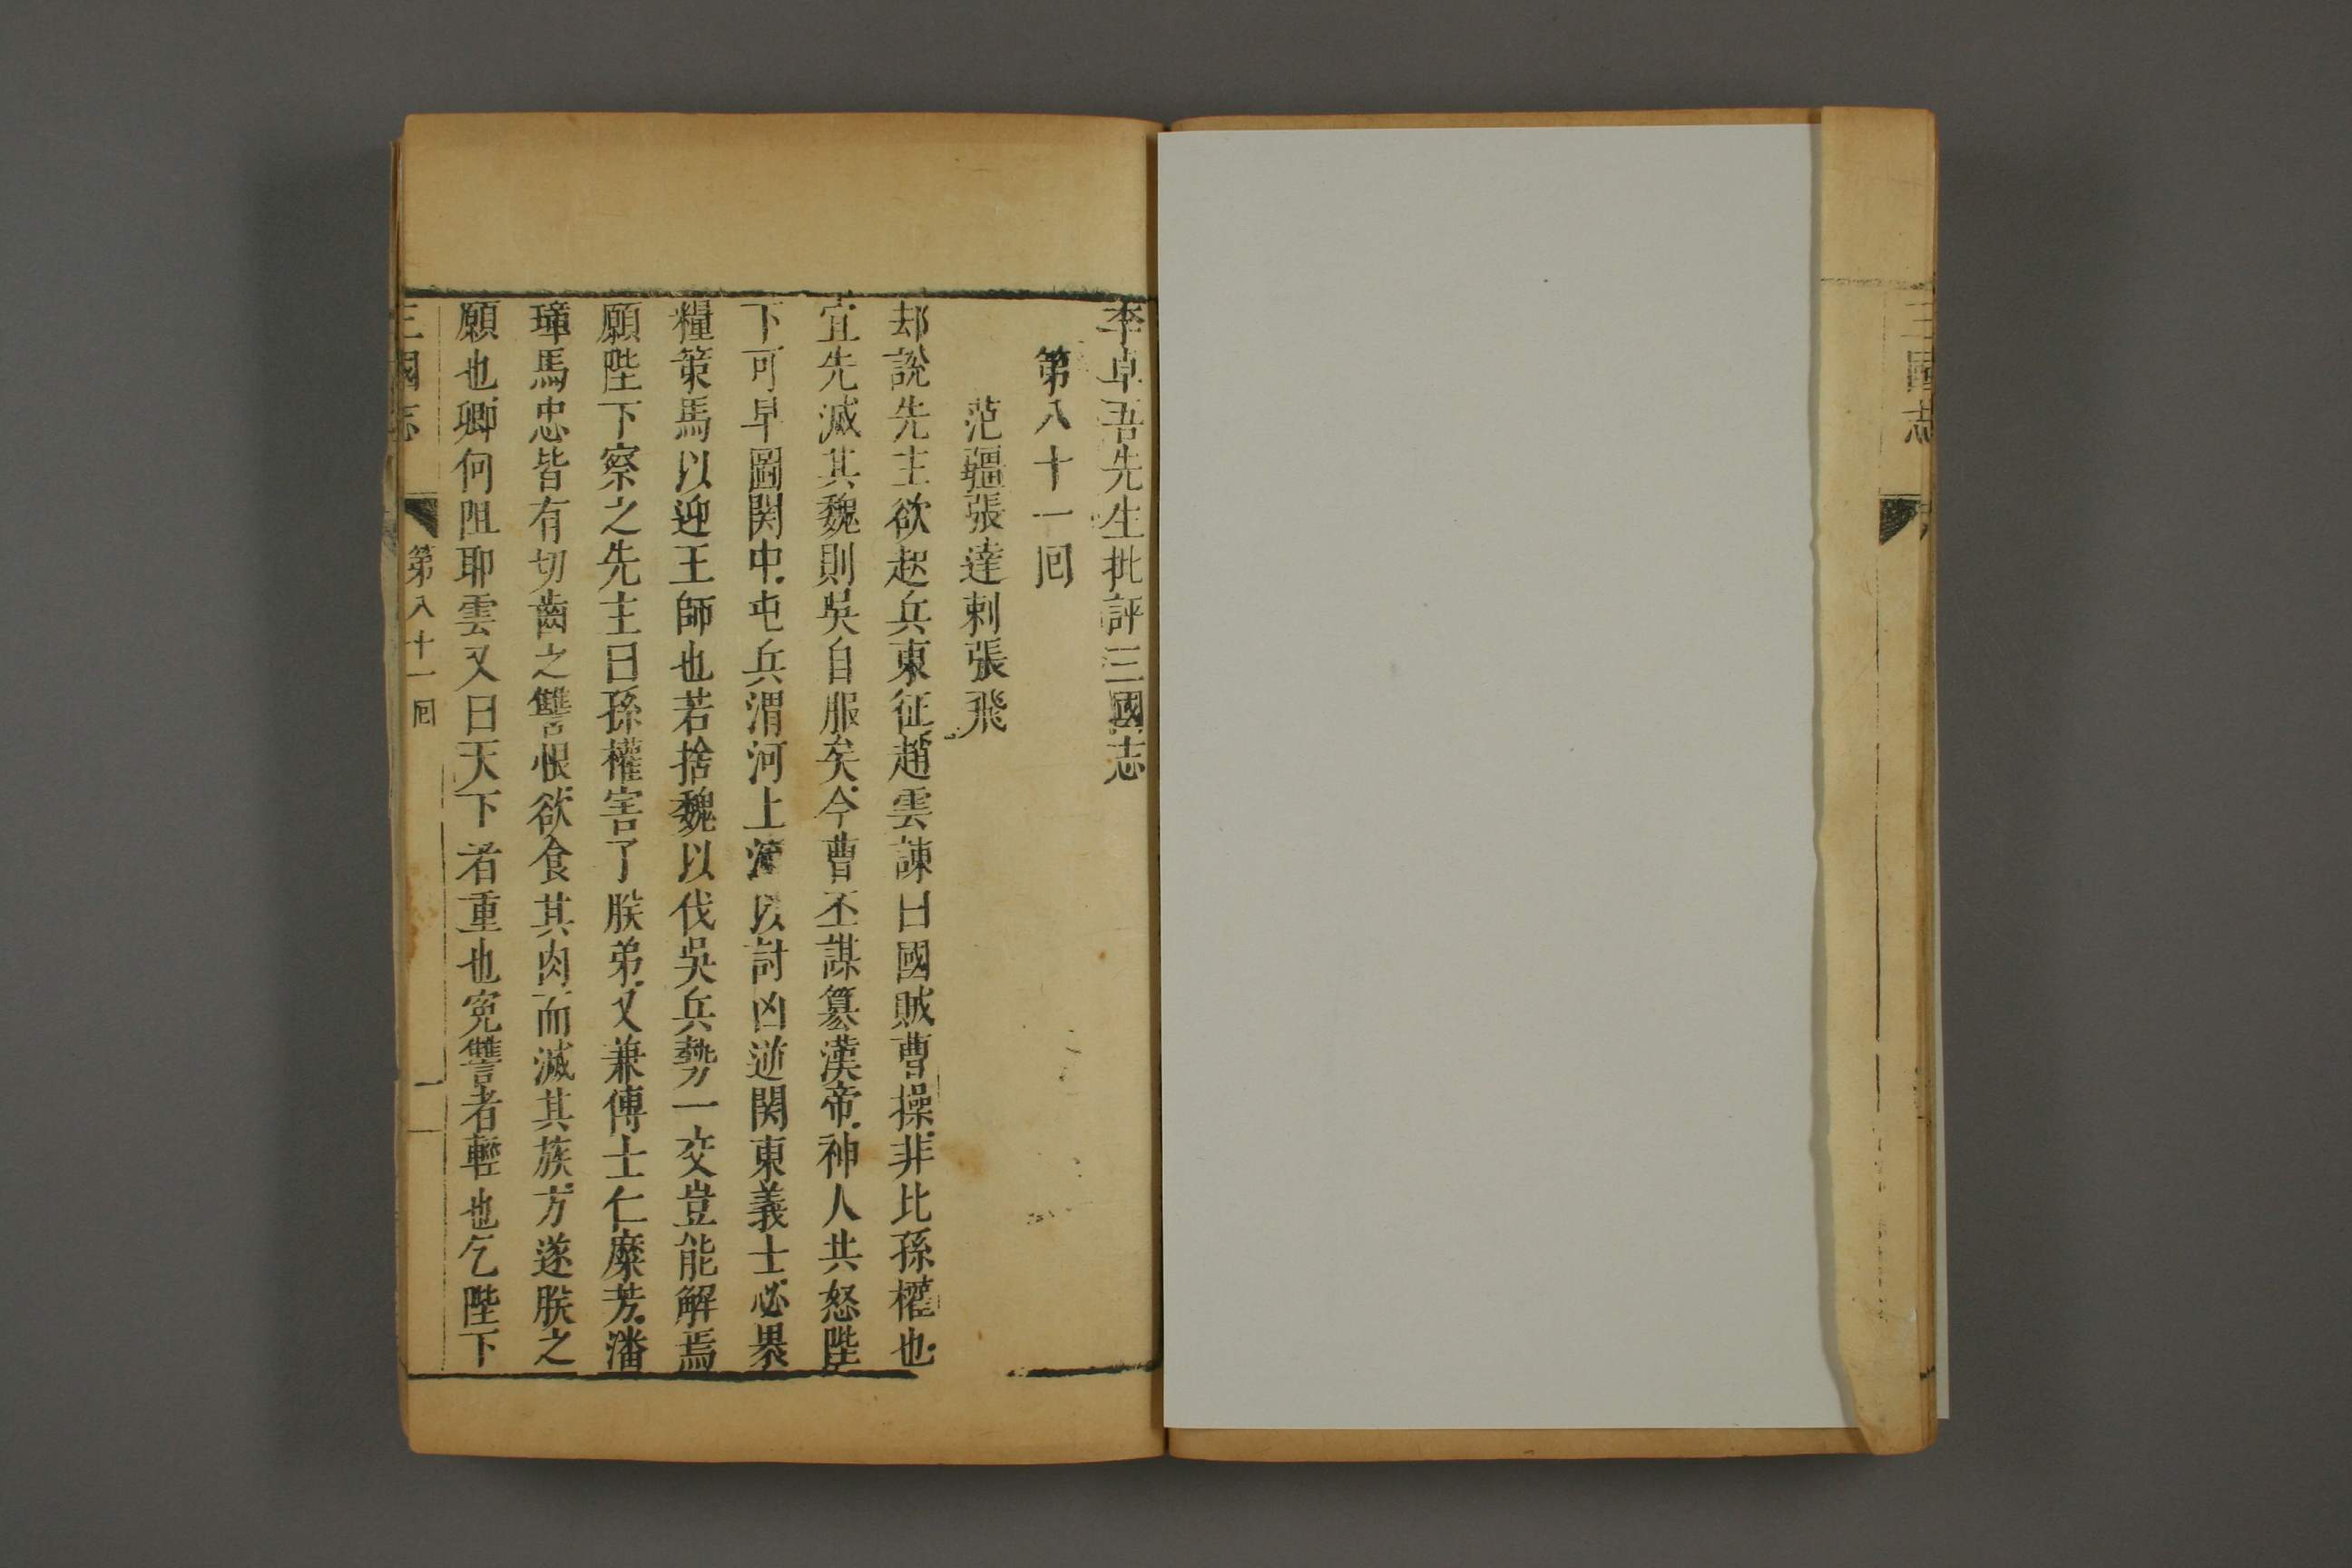 李卓吾先生批評三國志
第八十一回
范疆張達刺張飛
却說先主欲起兵東征趙雲諫曰國賊曹操非比孫權也
宜先滅其魏則吳自服矣今曹丕謀篡漢帝神人共怒陛
下可早圖関中屯兵渭河上流以討凶逆関東義士必畏
糧策馬以迎王師也若捨魏以伐吳兵勢一交豈能解焉
願陛下察之先主曰孫權害了朕弟又兼傅士仁糜芳潘
璋馬忠皆有切齒之讐恨欲食其肉而滅其族方遂朕之
願也卿何阻耶雲又曰天下者重也寃讐者輕也乞陛下
三國志 第八十一回 一
三國志